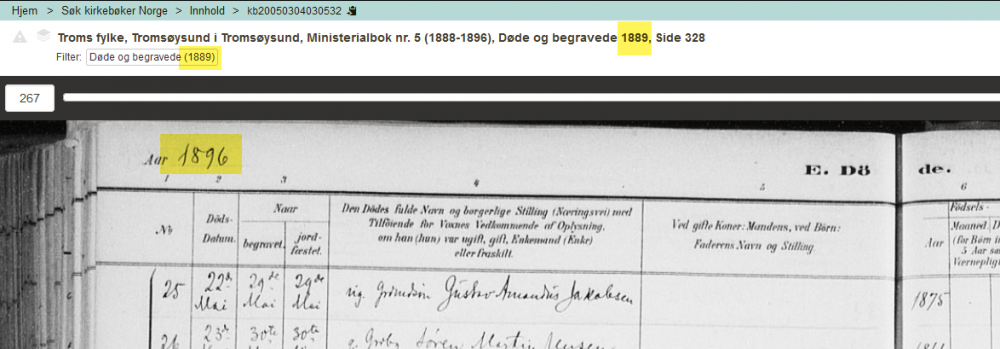 Hjem > Søk kirkebøker Norge > Innhold > kb20050304030532
Troms fylke, Tromsøysund i Tromsøysund, Ministerialbok nr. 5 (1888-1896), Døde og begravede 1889, Side 328
Filter: Døde og begravede (1889)
267
Aar 1896
E. Dö
de.
1 2 3 4 5 6
No
Döds-
Datum.
Naar
begravet.
jord-
fæstet.
Den Dödes fulde Navn og borgerlige Stilling (Næringsvei) med
Tilföiende for Voxnes Vedkommende af Oplysning,
om han (hun) var ugift, gift, Enkemand (Enke)
eller fraskilt.
Ved gifte Koner: Mandens, ved Börn:
Faderens Navn og Stilling.
Födsels-
Aar
Maaned,
(for Börn
5 Aar
Værneplig
25 22de Mai 29de Mai 29de Mai ug. Gustav Amandus Jakobsen 1875
26 23de 30te 30te Sören Martin